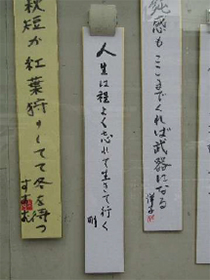 鈍感もここまでくれば武器になる
人生は程よく忘れて生きて行く
剛
秋短か紅葉狩りして冬を待つ